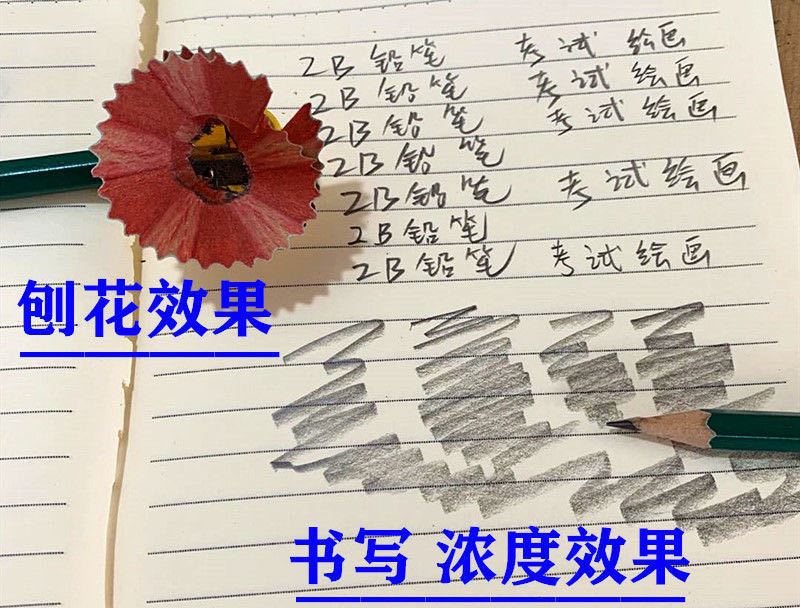 2B 铅笔 考试 绘画
2B 铅笔 考试 绘画
2B 铅笔 考试 绘画
2B 铅笔
2B 铅笔 考试 绘画
2B 铅笔
2B 铅笔 考试 绘画
刨花效果
书写 浓度效果